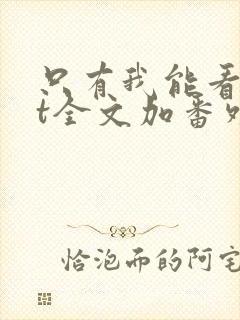 只有我能看
t全文加番
恰泡面的阿宅